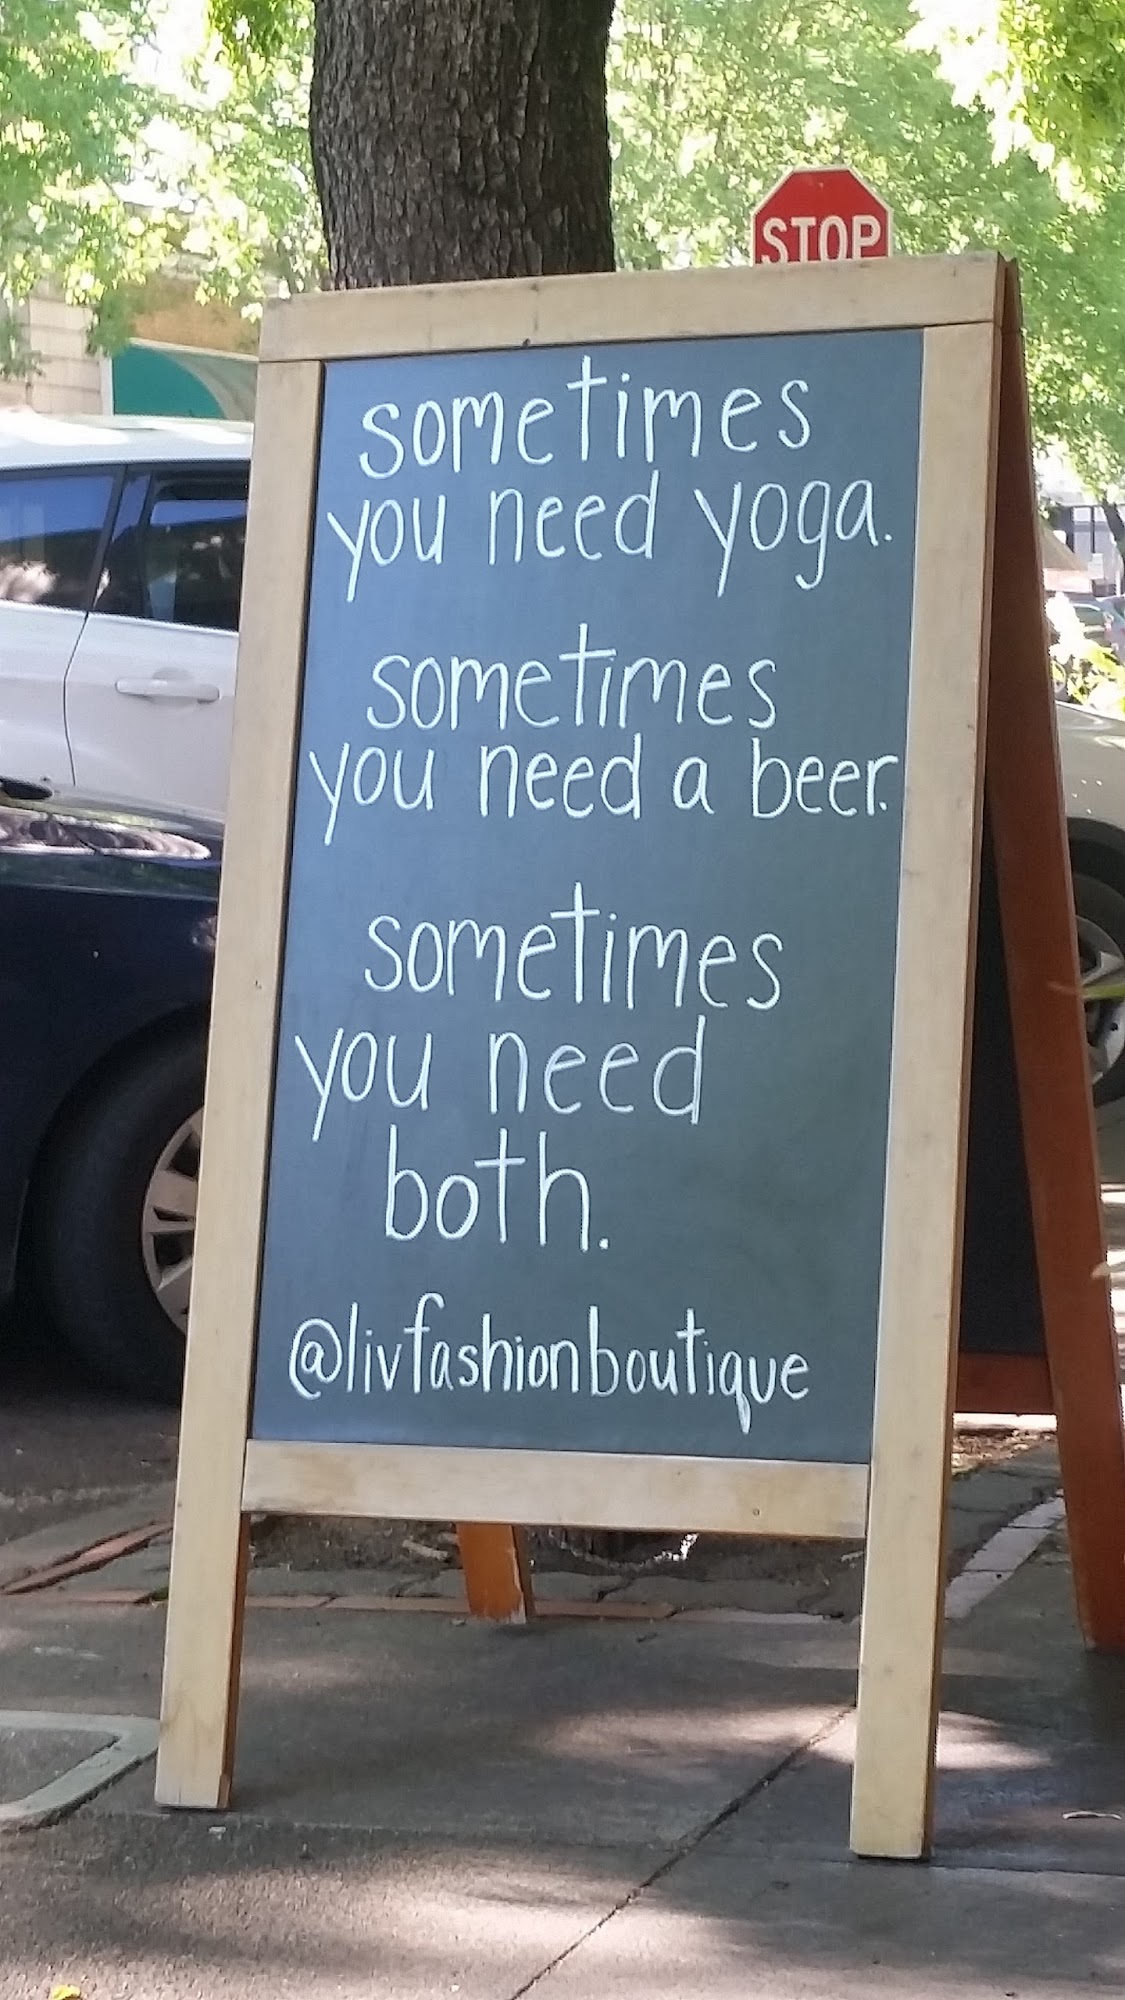 STOP
sometimes
you need yoga.
sometimes
you need a beer.
sometimes
you need
both.
@livfashionboutique